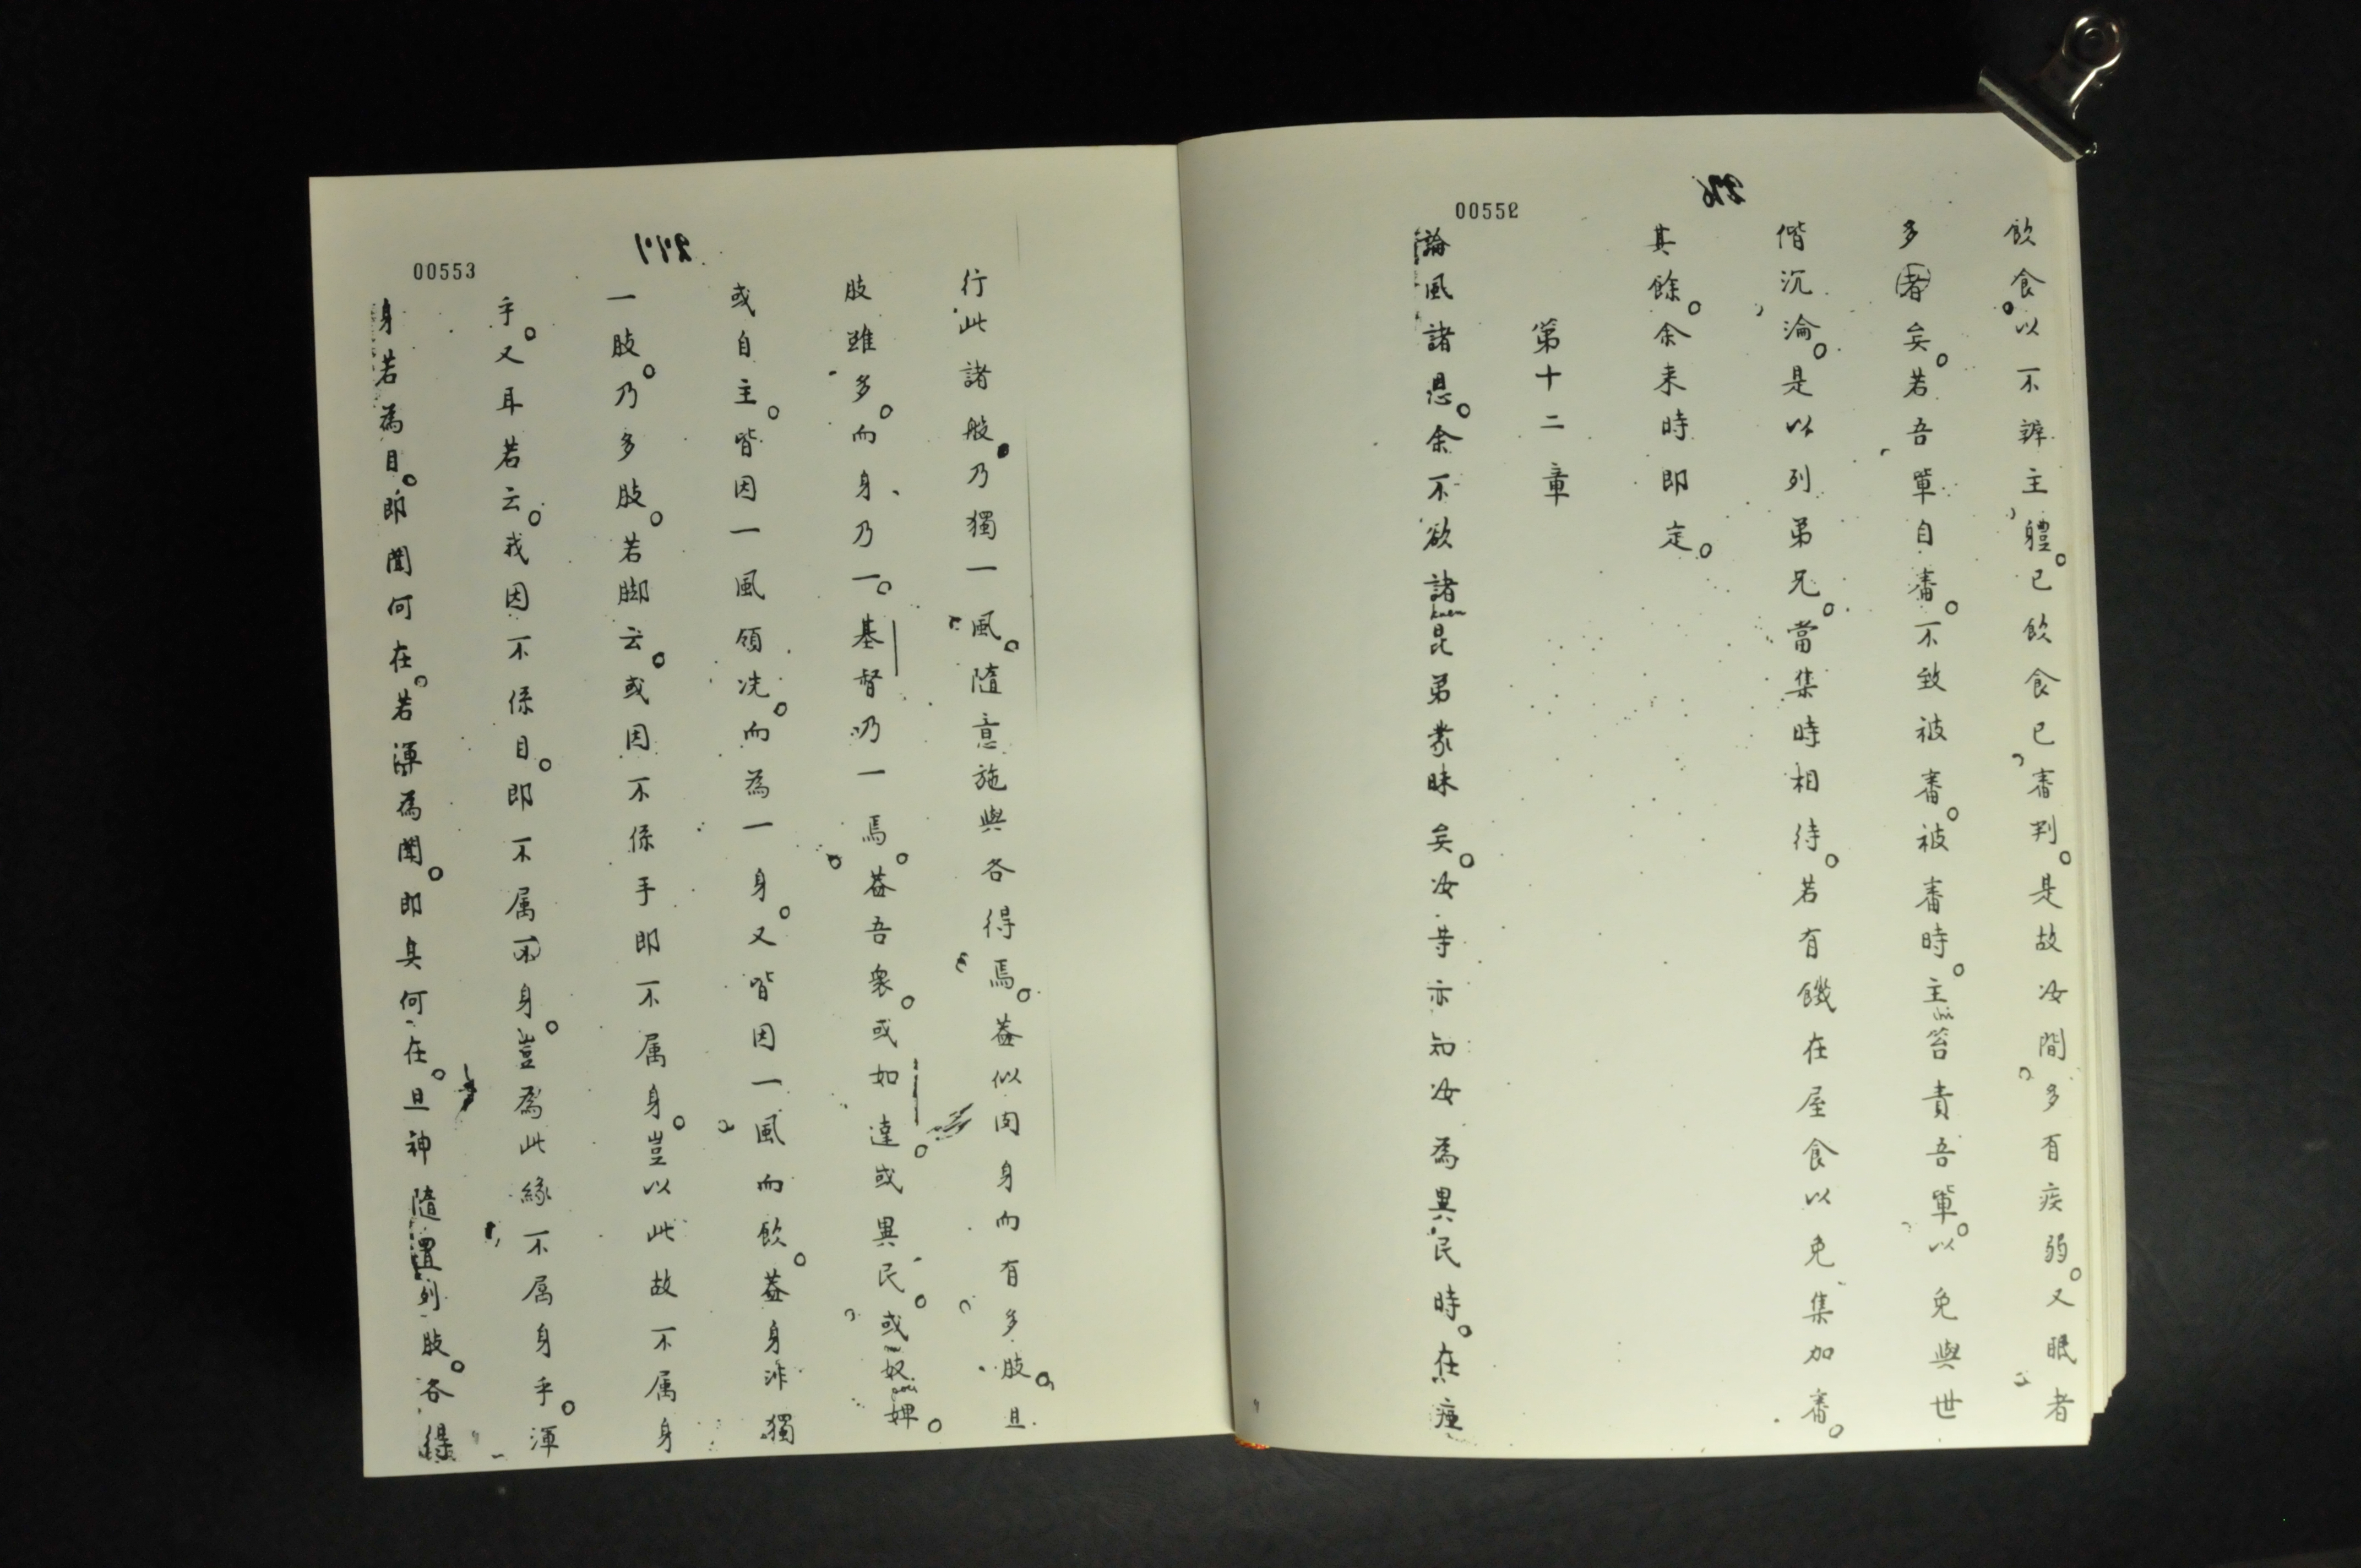 00552
飲食以不辨主軆。已飲食已審判。是故汝間多有疾弱。又眠者
多者矣。若吾軰自審。不致被審。被審時。主笞責吾軰。以免與世
偕沉淪。是以列弟兄。當集時相待。若有饑在屋食以免集加審。
其餘。余来時即定。
第十二章
論風諸恩。余不欲諸昆弟蒙昧矣。汝等亦知汝為異民時。在瘂
00553
行此諸般。乃獨一風。隨意施與各得焉。葢似肉身而有多肢。且
肢雖多。而身乃一。基督乃一焉。葢吾衆。或如達。或異民。或奴婢。
或自主。皆因一風領洗。而為一身。又皆因一風而飲。葢身非獨
一肢。乃多肢。若脚云。或因不係手即不属身。豈以此故不属身
乎。又耳若云。我因不係目。即不属身。豈為此緣不属身乎。渾
身若為目。即聞何在。若渾為聞。即臭何在。且神隨置列肢。各得